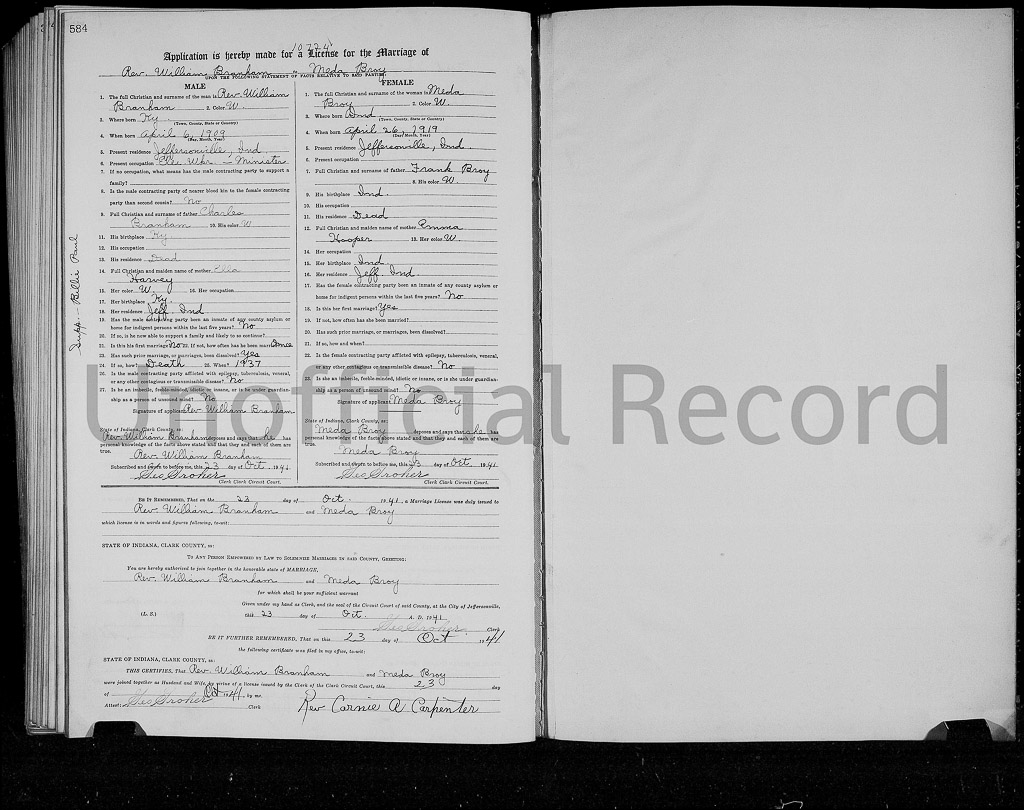 584
10724
Application is hereby made for a License for the Marriage of
Rev. William Branham to Meda Broy
UPON THE FOLLOWING STATEMENT OF FACTS RELATIVE TO SAID PARTIES:
MALE
1. The full Christian and surname of the man is Rev. William
Branham 2. Color W.
3. Where born Ky.
(Town, County, State or Country)
4. When born April 6, 1909
(Day, Month, Year)
5. Present residence Jeffersonville, Ind.
6. Present occupation Elec. Wkr. - Minister
7. If no occupation, what means has the male contracting party to support a
family?
8. Is the male contracting party of nearer blood kin to the female contracting
party than second cousin? No
9. Full Christian and surname of father Charles
Branham 10. His color W
11. His birthplace Ky
12. His occupation
13. His residence Dead
14. Full Christian and maiden name of mother Ella
Harvey
15. Her color W. 16. Her occupation
17. Her birthplace Ky.
18. Her residence Jeff. Ind
19. Has the male contracting party been an inmate of any county asylum or
home for indigent persons within the last five years? No
20. If so, is he now able to support a family and likely to so continue?
21. Is this his first marriage? No 22. If not, how often has he been married? Once
23. Has such prior marriage, or marriages, been dissolved? Yes
24. If so, how? Death 25. When? 1937
26. Is the male contracting party afflicted with epilepsy, tuberculosis, venereal,
or any other contagious or transmissible disease? No
27. Is he an imbecile, feeble-minded, idiotic or insane, or is he under guardian-
ship as a person of unsound mind? No
Signature of applicant Rev. William Branham
State of Indiana, Clark County, ss:
Rev. William Branham deposes and says that he has
personal knowledge of the facts above stated and that they and each of them are
true.
Rev. William Branham
Subscribed and sworn to before me, this 23 day of Oct. 1941
Geo Groher
Clerk Clark Circuit Court.
FEMALE
1. The full Christian and surname of the woman is Meda
Broy 2. Color W.
3. Where born Ind
(Town, County, State or Country)
4. When born April 26, 1919
(Day, Month, Year)
5. Present residence Jeffersonville, Ind.
6. Present occupation
7. Full Christian and surname of father Frank Broy
8. His color W.
9. His birthplace Ind.
10. His occupation
11. His residence Dead
12. Full Christian and maiden name of mother Emma
Hooper 13. Her color W.
14. Her occupation
15. Her birthplace Ind.
16. Her residence Jeff. Ind
17. Has the female contracting party been an inmate of any county asylum or
home for indigent persons within the last five years? No
18. Is this her first marriage? Yes
19. If not, how often has she been married?
20. Has such prior marriage, or marriages, been dissolved?
21. If so, how and when?
22. Is the female contracting party afflicted with epilepsy, tuberculosis, venereal,
or any other contagious or transmissible disease? No
23. Is she an imbecile, feeble-minded, idiotic or insane, or is she under guardian-
ship as a person of unsound mind? No
Signature of applicant Meda Broy
State of Indiana, Clark County, ss:
Meda Broy deposes and says that she has
personal knowledge of the facts above stated and that they and each of them are
true.
Meda Broy
Subscribed and sworn to before me, this 23 day of Oct. 1941
Geo Groher
Clerk Clark Circuit Court.
Supp - Billie Paul
Unofficial Record
BE IT REMEMBERED, That on the 23 day of Oct. 1941, a Marriage License was duly issued to
Rev. William Branham and Meda Broy
which license is in words and figures following, to-wit:
STATE OF INDIANA, CLARK COUNTY, ss:
TO ANY PERSON EMPOWERED BY LAW TO SOLEMNIZE MARRIAGES IN SAID COUNTY, GREETING:
You are hereby authorized to join together in the honorable state of MARRIAGE,
Rev. William Branham and Meda Broy
for which shall be your sufficient warrant
Given under my hand as Clerk, and the seal of the Circuit Court of said County, at the City of Jeffersonville,
(L. S.) this 23 day of Oct. A. D. 1941
Geo Groher Clerk
BE IT FURTHER REMEMBERED, That on this 23 day of Oct 1941
the following certificate was filed in my office, to-wit:
STATE OF INDIANA, CLARK COUNTY, ss:
THIS CERTIFIES, That Rev. William Branham and Meda Broy
were joined together as Husband and Wife, by virtue of a license issued by the Clerk of the Clark Circuit Court, this 23 day
of Oct 1941, by me.
Attest: Geo Groher Clerk
Rev Carnie A Carpenter